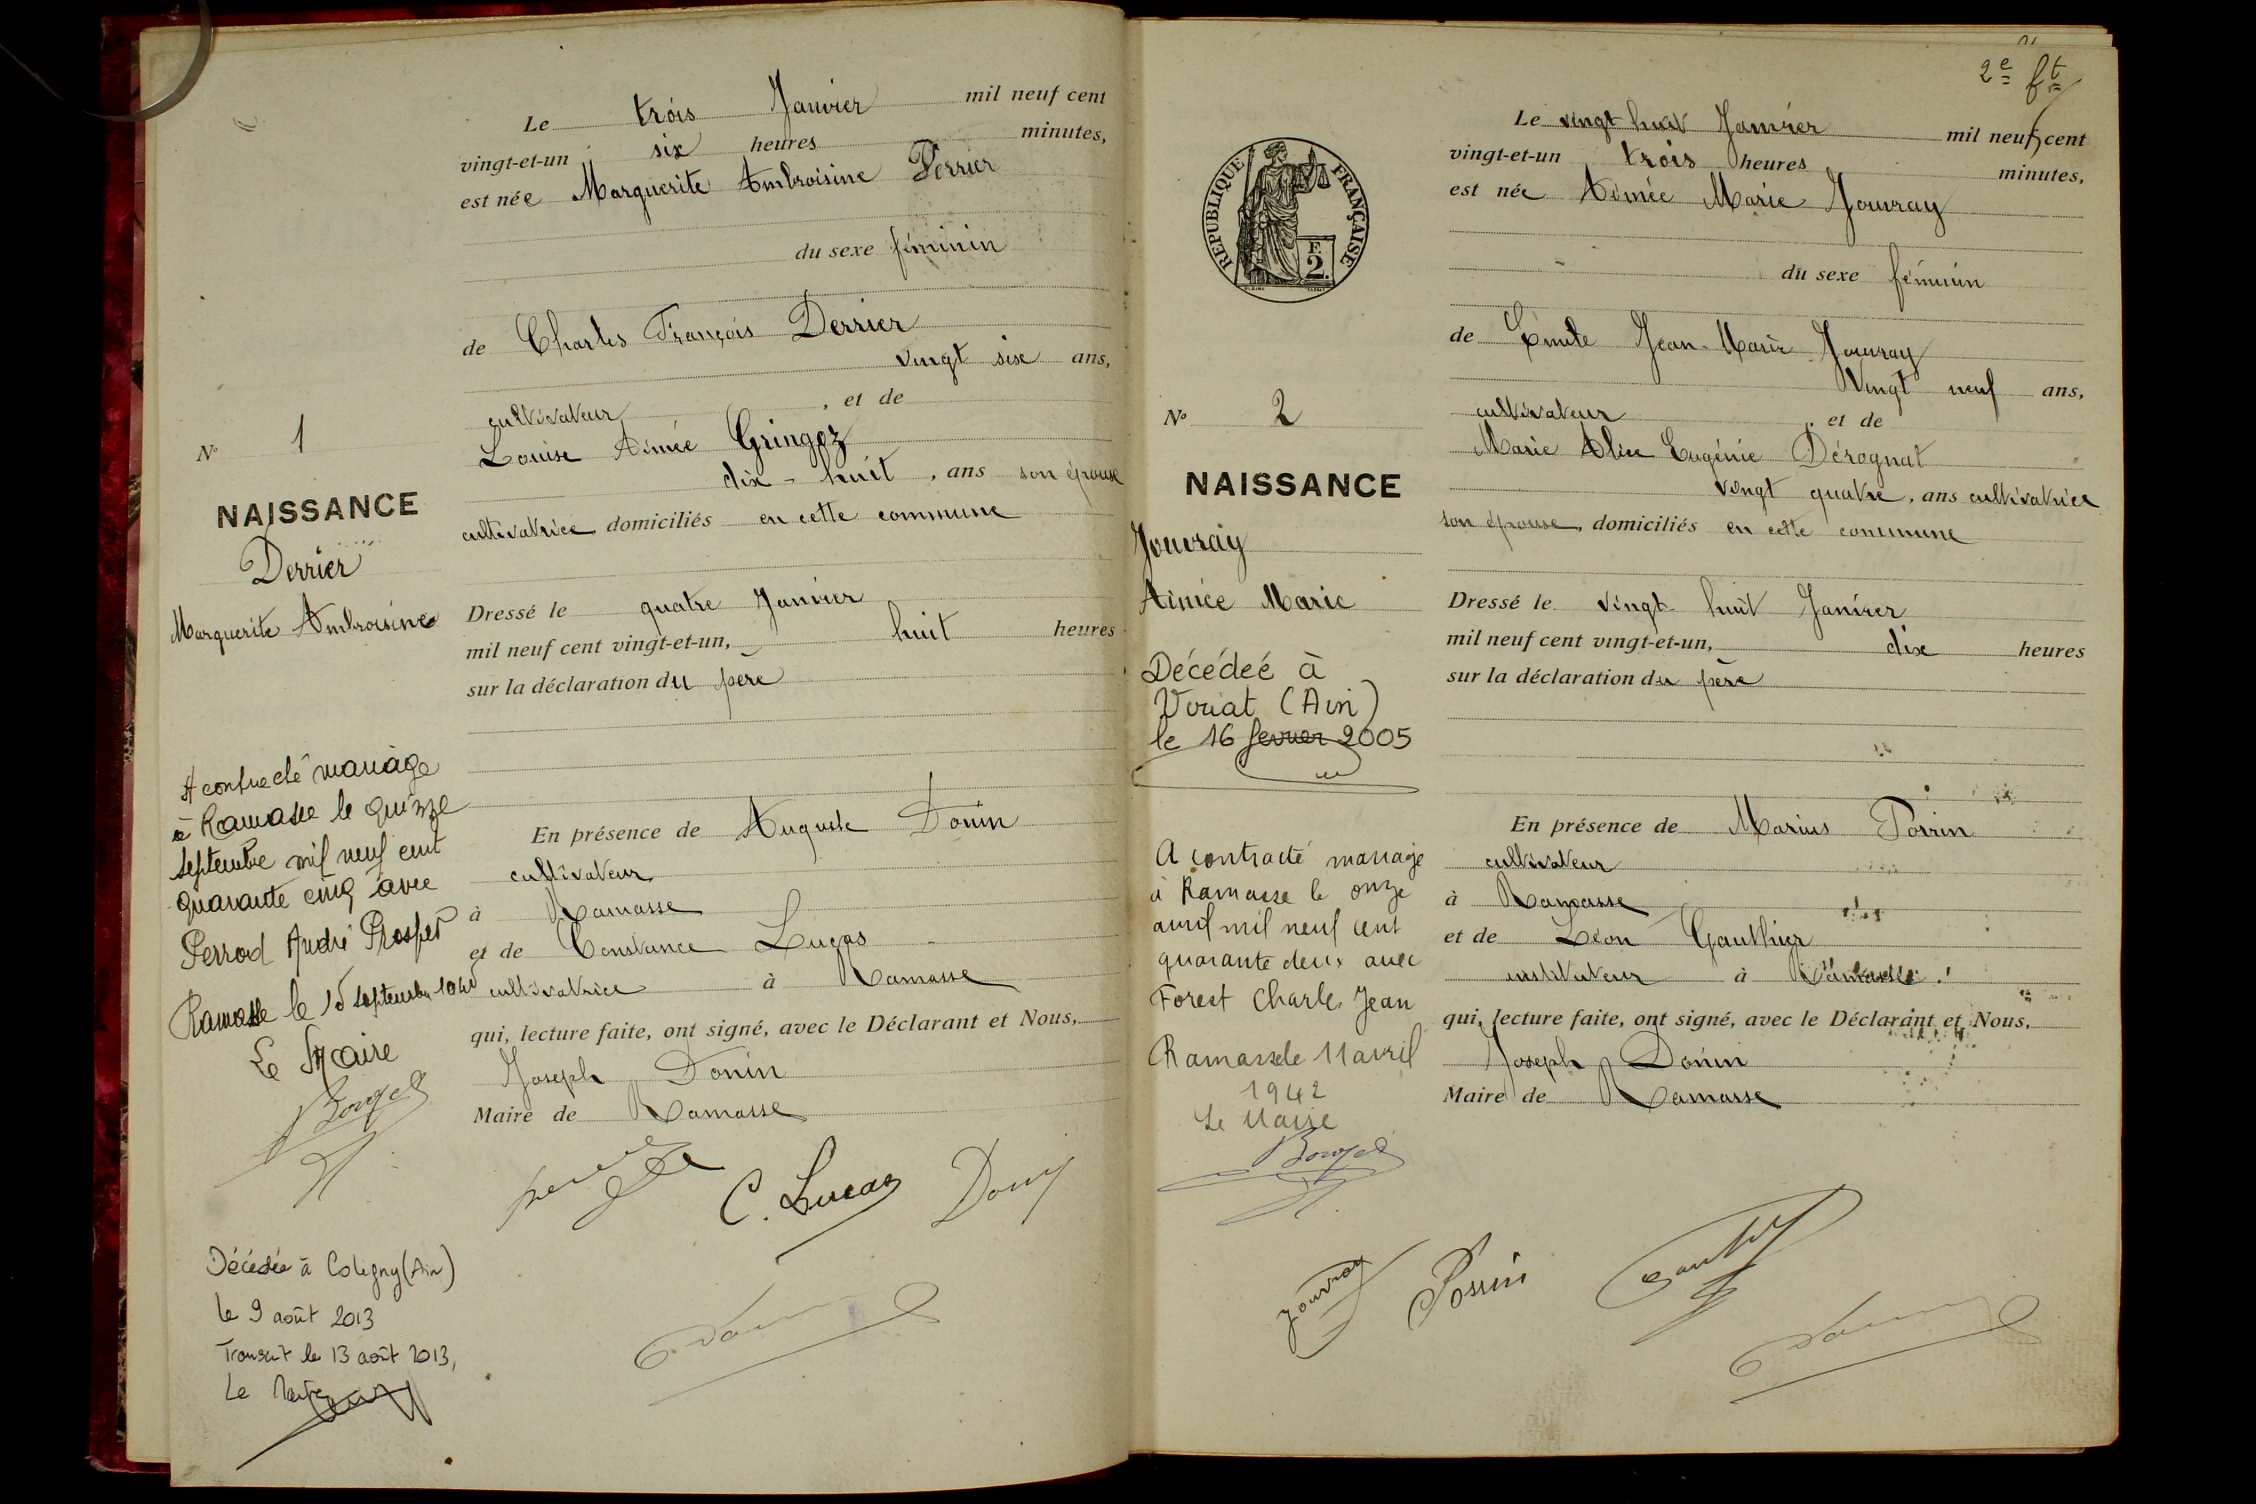 Le trois Janvier mil neuf cent
vingt-et-un six heures minutes,
est née Marguerite Ambroisine Derrier
du sexe féminin
de Charles François Derrier
vingt six ans,
cultivateur, et de
Louise Aimée Gringoz
dix-huit, ans son épouse
cultivatrice domiciliés en cette commune
N° 1
NAISSANCE
Derrier
Marguerite Ambroisine
Dressé le quatre Janvier
mil neuf cent vingt-et-un, huit heures
sur la déclaration du père
A contracté mariage
à Ramasse le quinze
septembre mil neuf cent
quarante cinq avec
Perrod André Prosper
Ramasse le 15 septembre
Le Maire
En présence de Auguste Donin
cultivateur
à Ramasse
et de Constance Lucas
cultivatrice à Ramasse
qui, lecture faite, ont signé, avec le Déclarant et Nous,
Joseph Donin
Maire de Ramasse
C. Lucas
Décédée à Coligny (Ain)
le 9 août 2013
Transcrit le 13 août 2013,
Le Maire
2e ft
Le vingt huit Janvier mil neuf cent
vingt-et-un trois heures minutes,
est née Aimée Marie Jouvray
du sexe féminin
REPUBLIQUE FRANÇAISE
E.
2
de Emile Jean-Marie Jouvray
vingt neuf ans,
cultivateur, et de
Marie Alice Eugénie Dérognat
vingt quatre, ans cultivatrice
son épouse, domiciliés en cette commune
N° 2
NAISSANCE
Jouvray
Aimée Marie
Dressé le vingt-huit Janvier
mil neuf cent vingt-et-un, dix heures
sur la déclaration du père
Décédée à
Viriat (Ain)
le 16 fevrier 2005
A contracté mariage
à Ramasse le onze
avril mil neuf cent
quarante deux avec
Forest Charles Jean
Ramasse le 11 avril
1942
Le Maire
En présence de Marius Perrin
cultivateur
à Ramasse
et de Léon Gauthier
instituteur à Ramasse
qui, lecture faite, ont signé, avec le Déclarant et Nous,
Joseph Donin
Maire de Ramasse
Jouvray